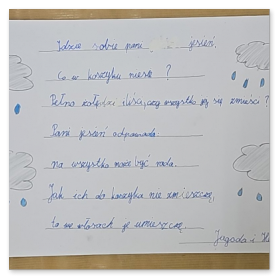 Idzie sobie pani jesień,
Co w koszyku niesie ?
Pełno żołędzi i liści, czy wszystko się zmieści ?
Pani jesień odpowiada:
na wszystko może być rada.
Jak ich do koszyka nie zmieszczę,
to we włosach je umieszczę.
Jagoda i